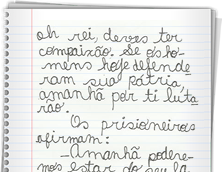 oh rei, deves ter
compaixão. Se os ho-
mens hoje defende
ram sua pátria
amanhã por ti luta
rão.
Os prisioneiros
afirmam:
_Amanhã podere-
mos estar do seu la